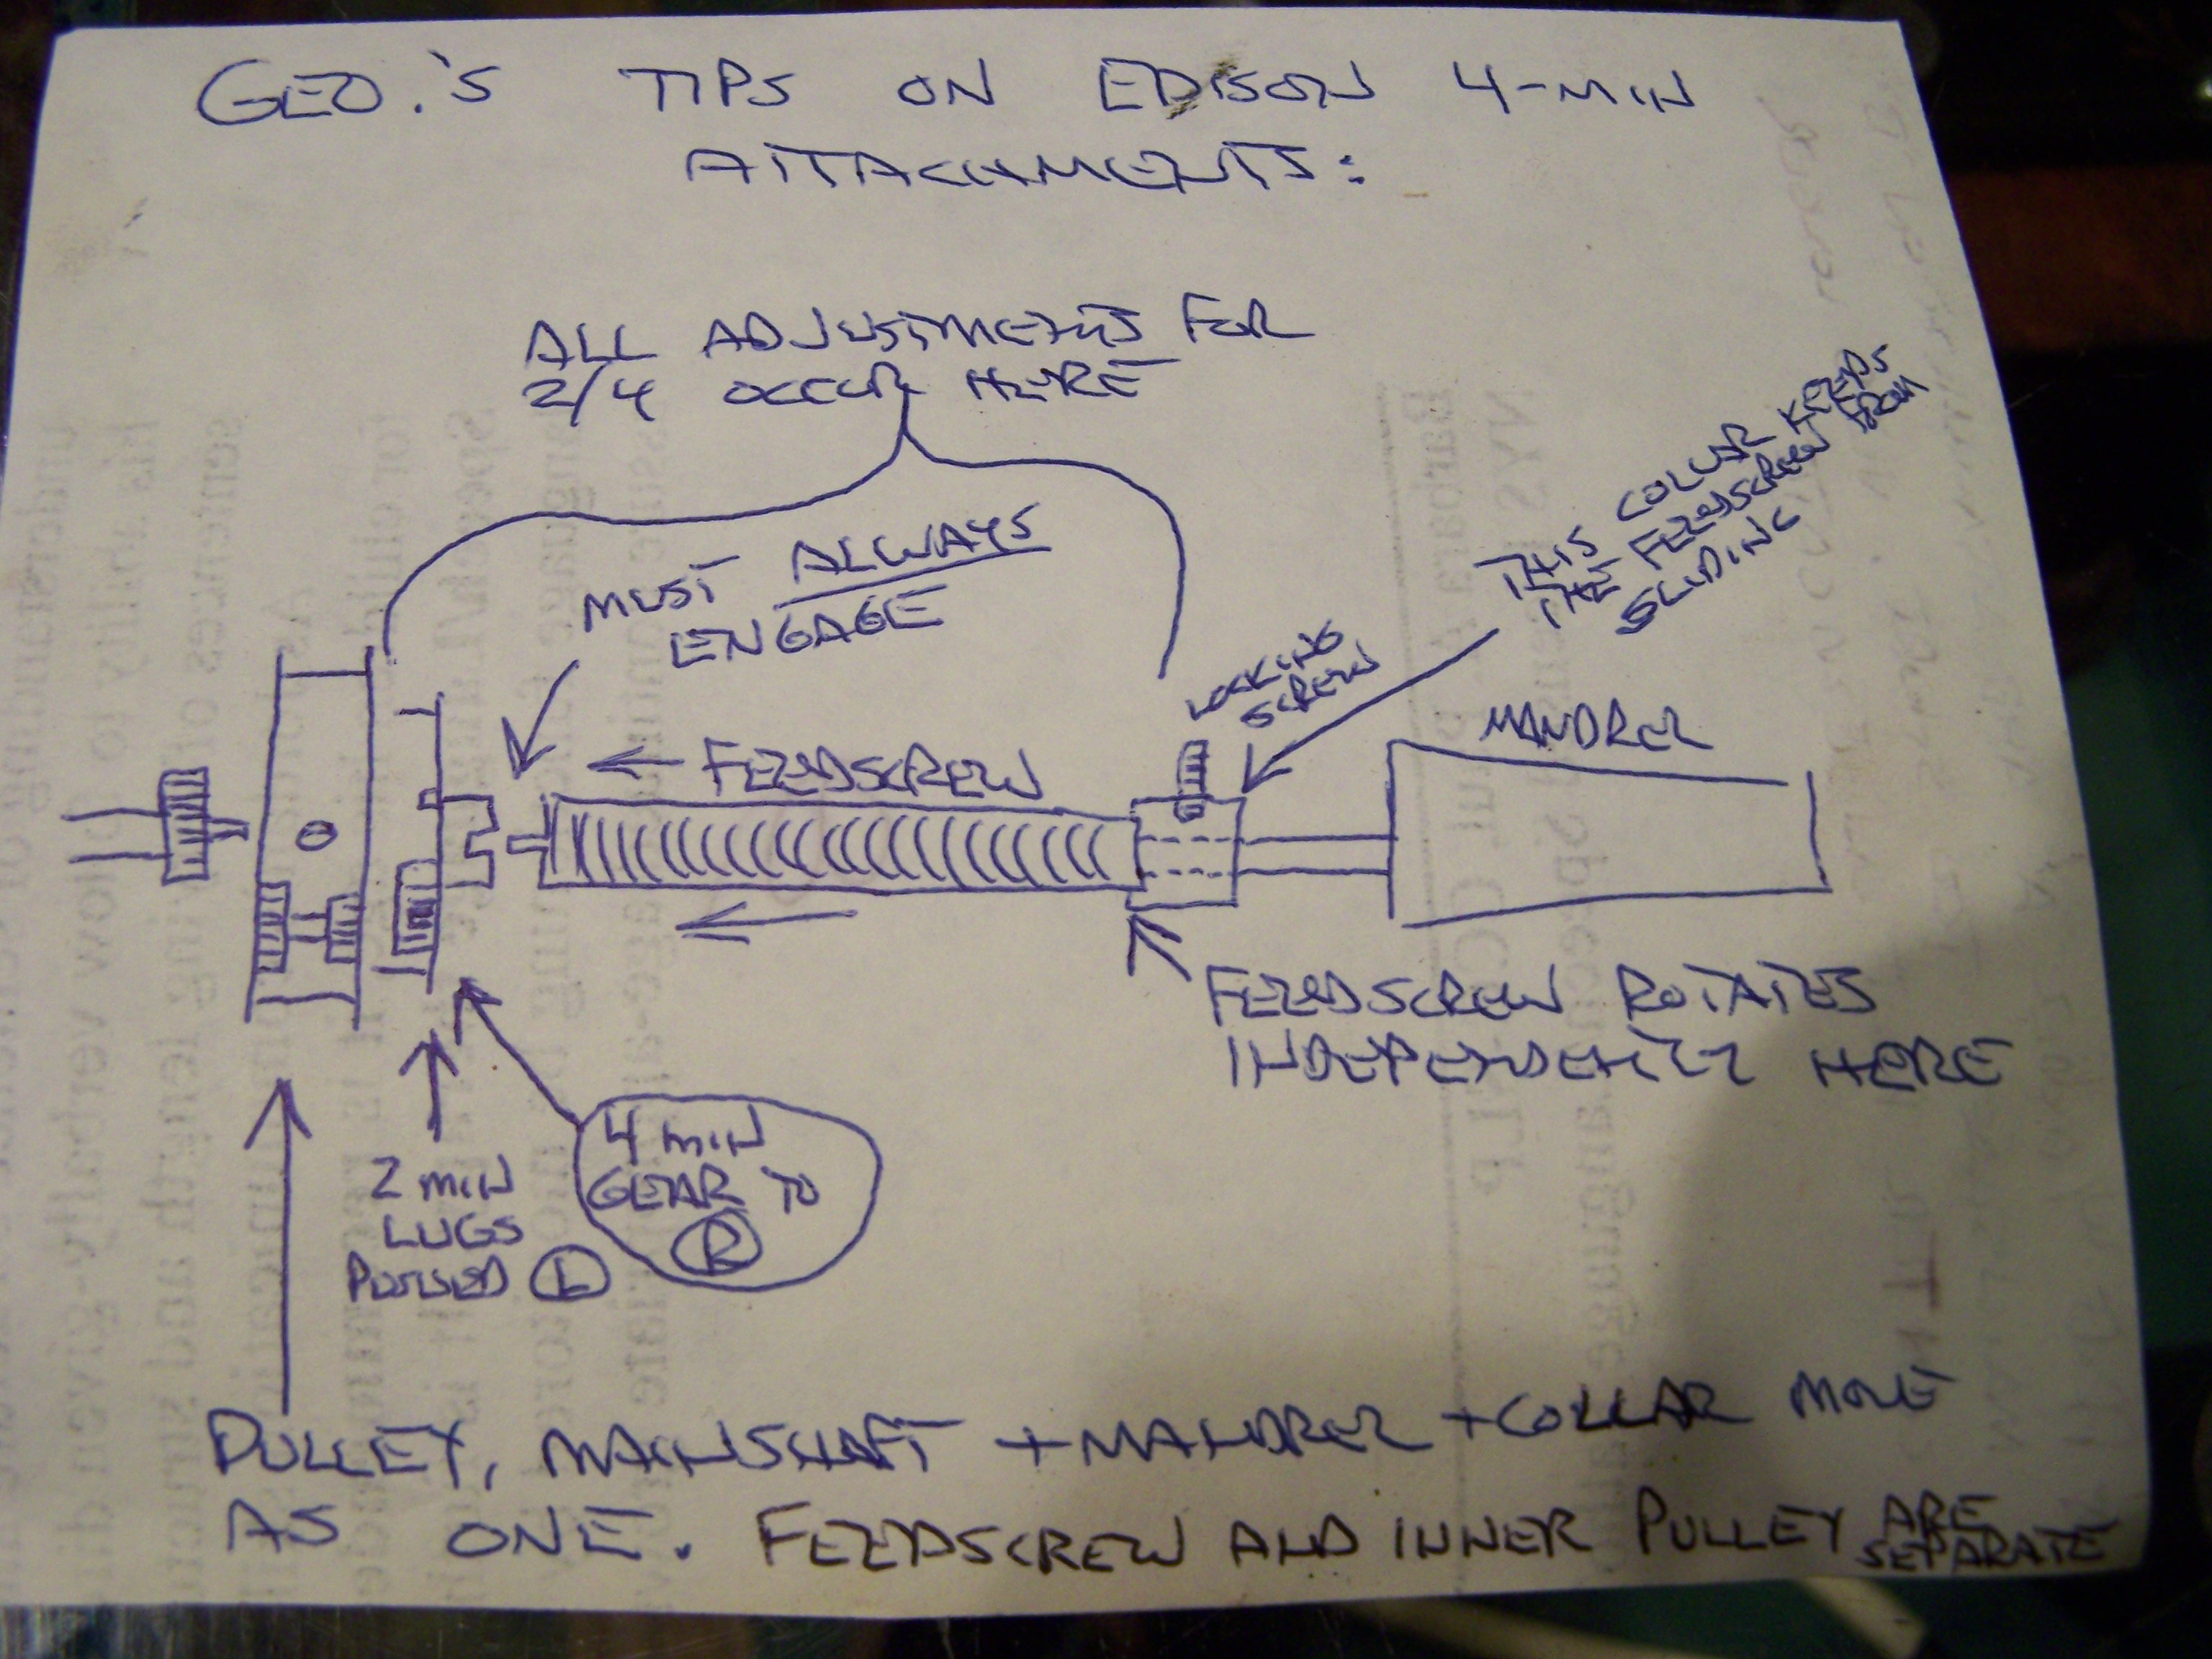 GEO.'S TIPS ON EDISON 4-MIN
ATTACHMENTS:
ALL ADJUSTMENTS FOR
2/4 OCCUR HERE
MUST ALWAYS
ENGAGE
THIS COLLAR KEEPS
THE FEEDSCREW FROM
SLIDING
LOCKING
SCREW
MANDREL
← FEEDSCREW
FEEDSCREW ROTATES
INDEPENDENTLY HERE
4 MIN
GEAR TO
R
2 MIN
LUGS
PUSHED L
PULLEY, MAINSHAFT + MANDREL + COLLAR MOVE
AS ONE. FEEDSCREW AND INNER PULLEY ARE
SEPARATE